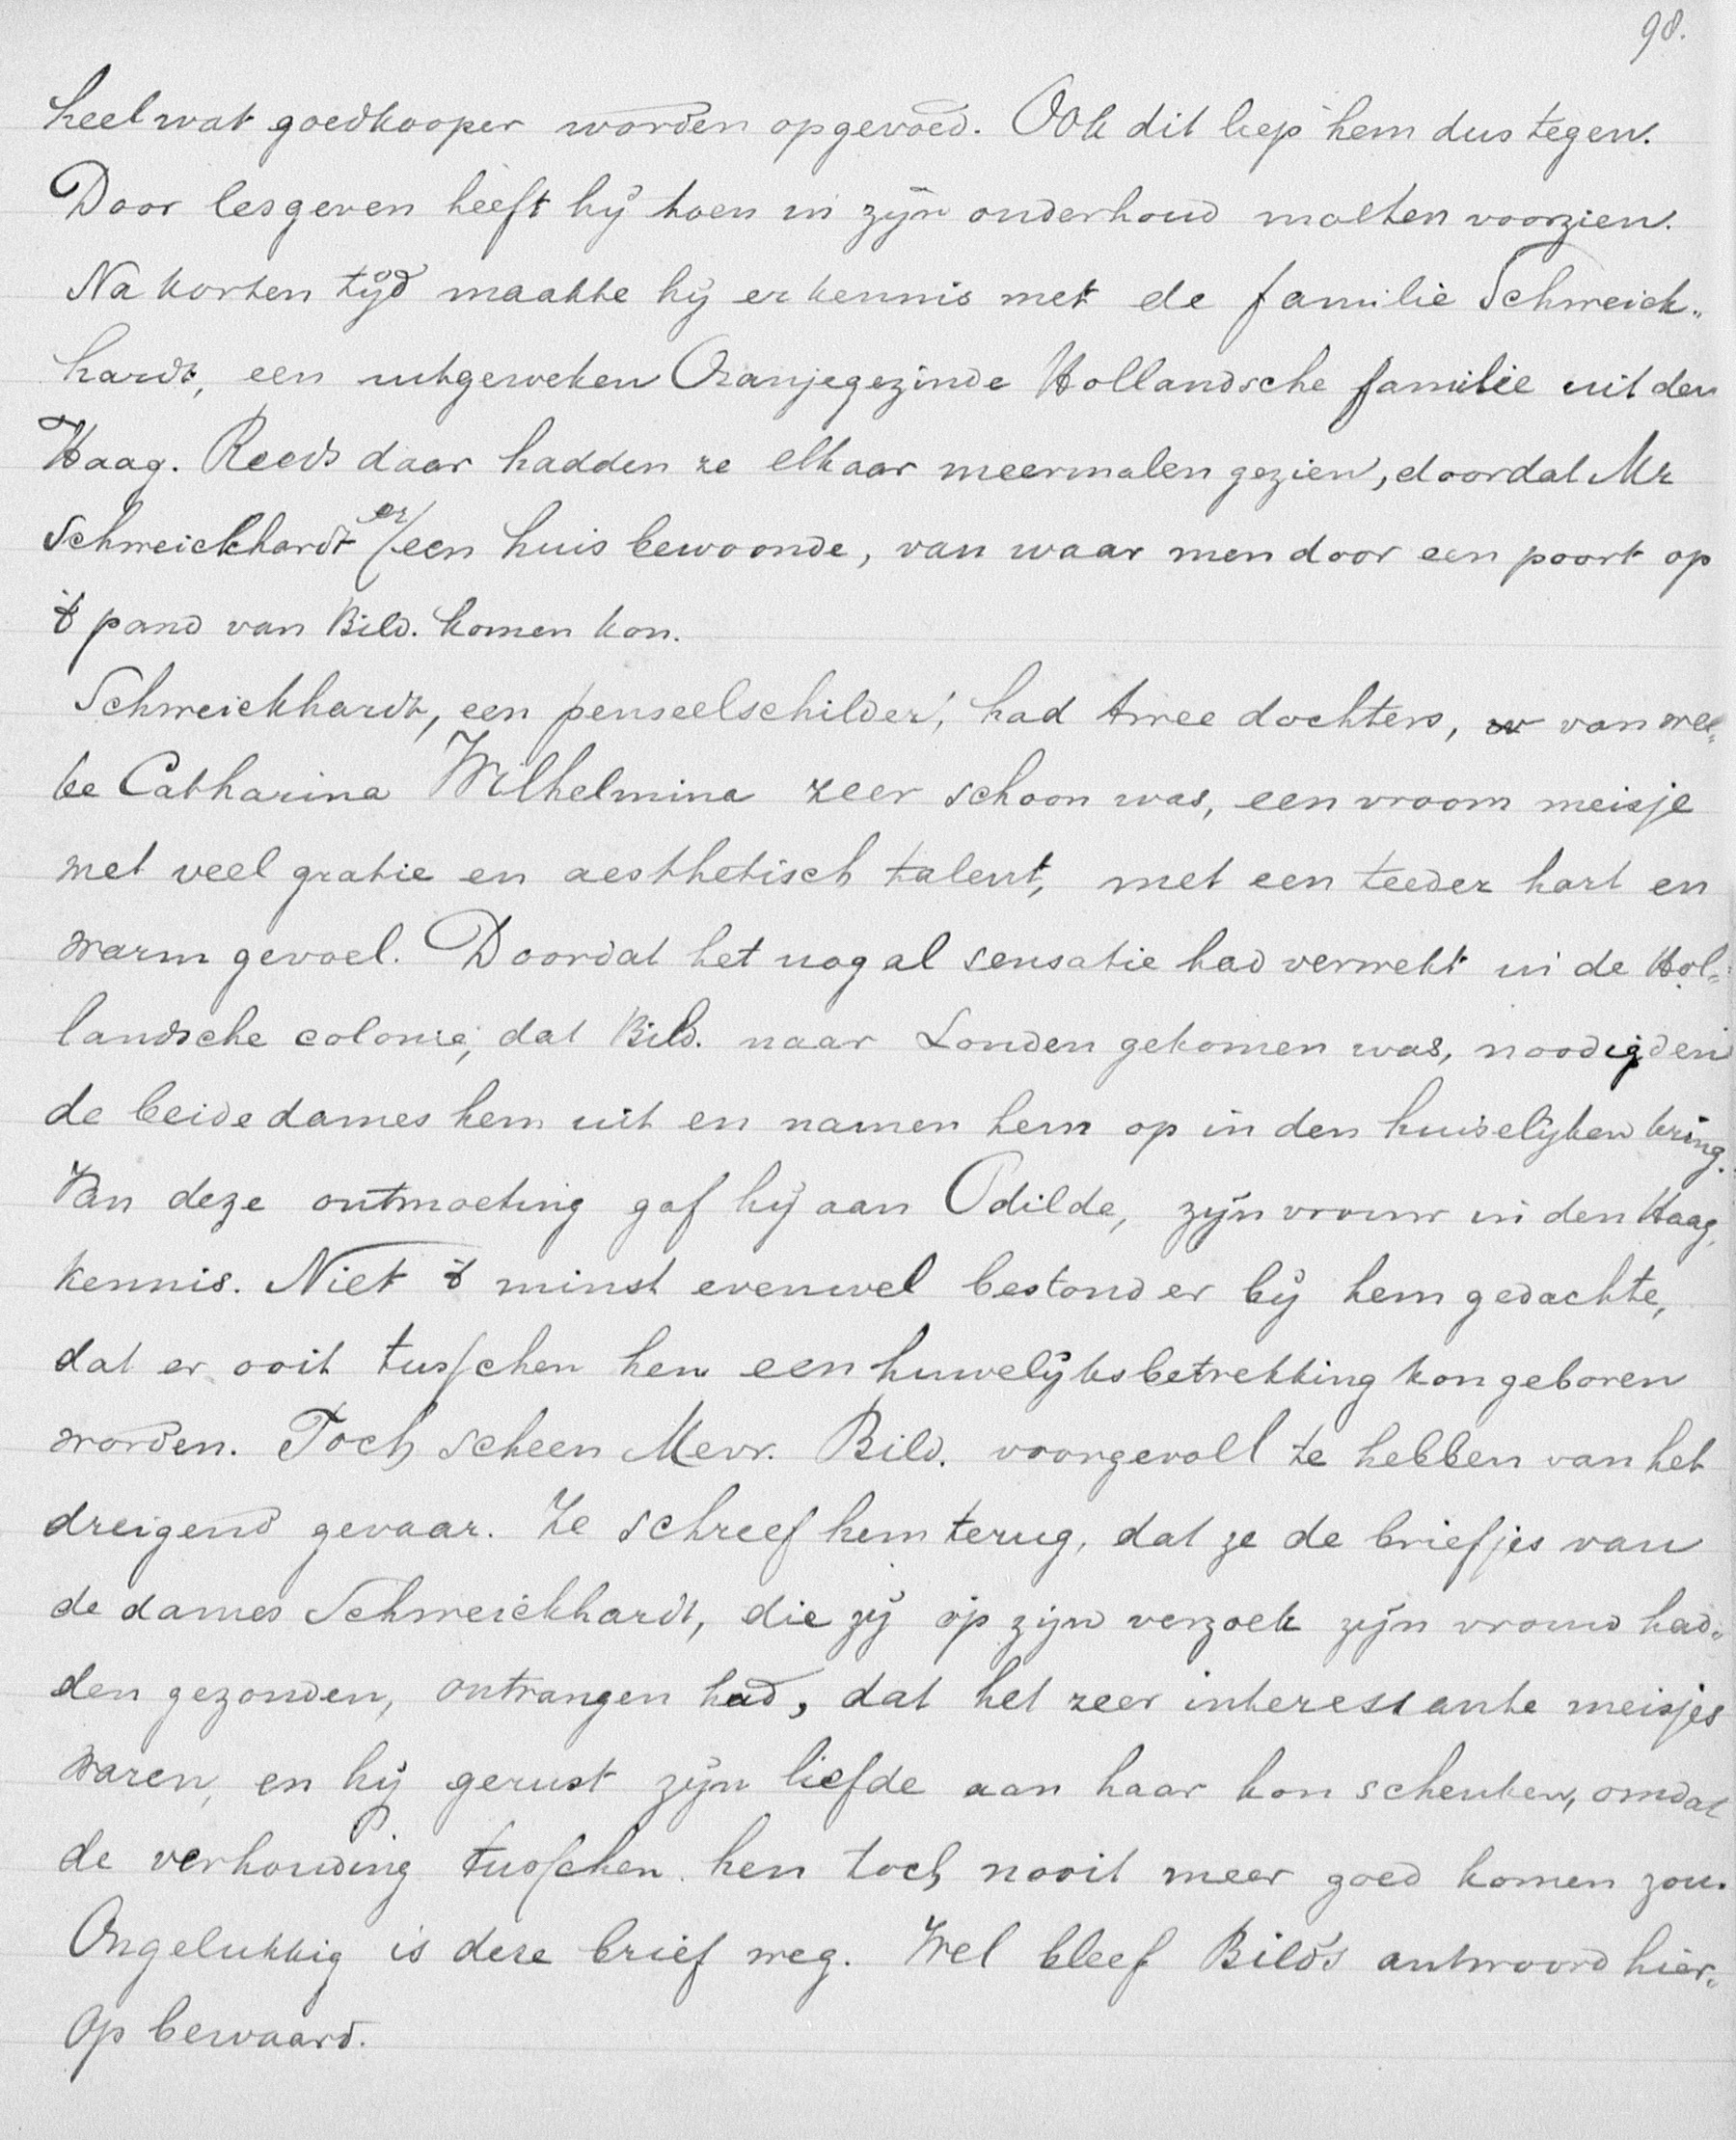 98.
heel wat goedkooper worden opgevoed. Ook dit liep hem dus tegen.
Door lesgeven heeft hij toen in zijn onderhoud moeten voorzien.
Na korten tijd maakte hij er kennis met de familie Schweick„
hardt, een uitgeweken Oranjegezinde Hollandsche familie uit den
Haag. Reeds daar hadden ze elkaar meermalen gezien, doordat Mr
Schweickhardt er een huis bewoonde, van waar men door een poort op
't pand van Bild. komen kon.
Schweickhardt, een penseelschilder, had twee dochters, van wel„
ke Catharina Wilhelmina zeer schoon was, een vroom meisje
met veel gratie en aesthetisch talent, met een teeder hart en
warm gevoel. Doordat het nog al sensatie had verwekt in de Hol„
landsche colonie, dat Bild. naar Londen gekomen was, noodigden
de beide dames hem uit en namen hem op in den huiselijken kring.
Van deze ontmoeting gaf hij aan Odilde, zijn vrouw in den Haag,
kennis. Niet 't minst evenwel bestond er bij hem gedachte,
dat er ooit tusschen hen een huwelijksbetrekking kon geboren
worden. Toch scheen Mevr. Bild. voorgevoll te hebben van het
dreigend gevaar. Ze schreef hem terug, dat ze de briefjes van
de dames Schweickhardt, die zij op zijn verzoek zijn vrouw had„
den gezonden, ontvangen had, dat het zeer interessante meisjes
waren, en hij gerust zijn liefde aan haar kon schenken, omdat
de verhouding tusschen hen toch nooit meer goed komen zou.
Ongelukkig is deze brief weg. Wel bleef Bild's antwoord hier„
op bewaard.